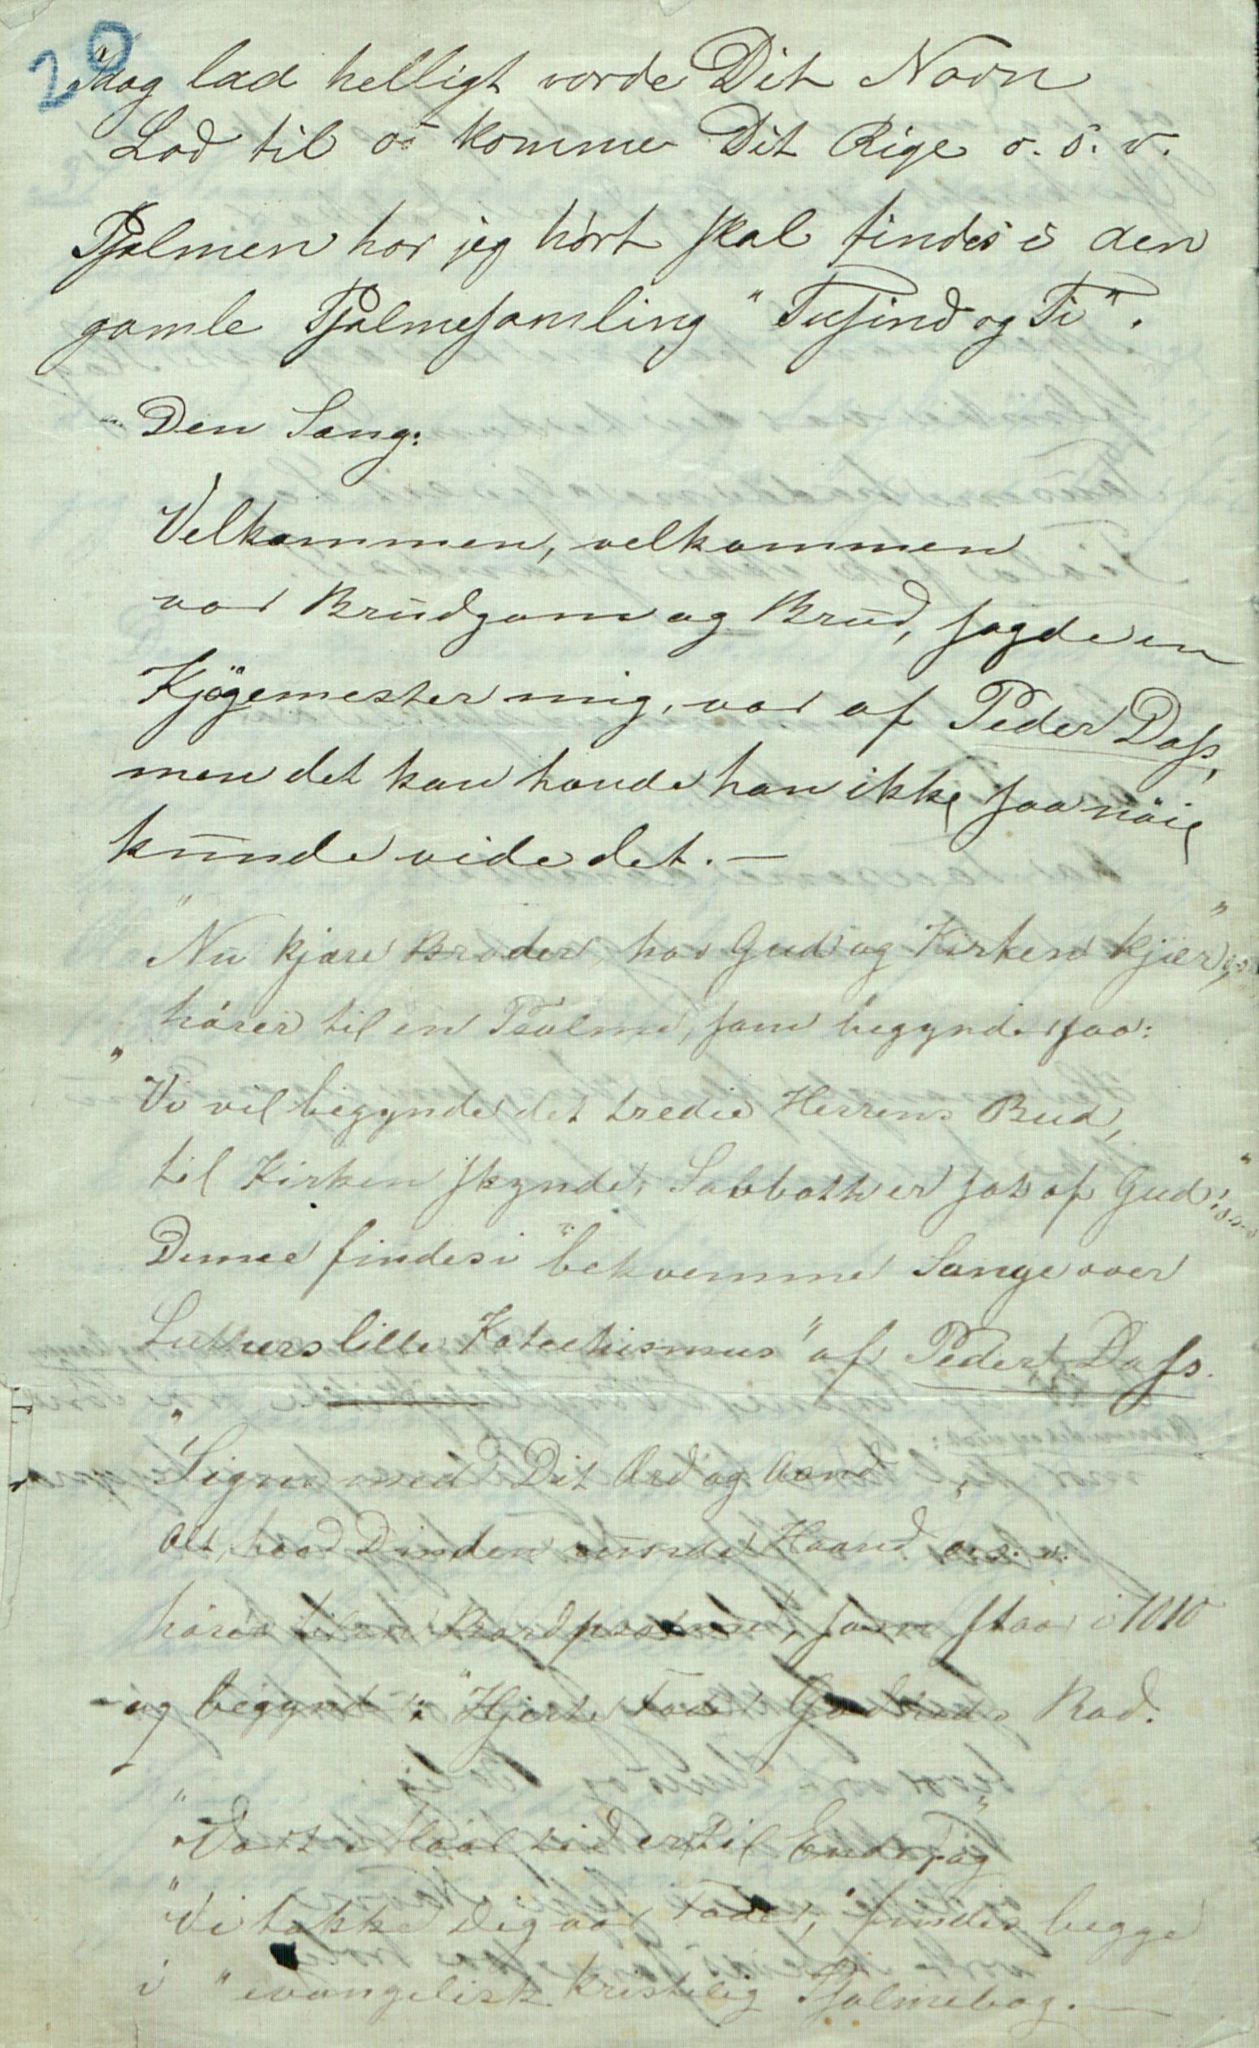 20
Idag lad helligt vorde Dit Navn
Lad til os komme Dit Rige o. s. v.
Psalmen har jeg hørt skal findes i den
gamle Psalmesamling "Tusind og Ti".
Den Sang:
Velkommen, velkommen
vor Brudgom og Brud, sagde en
Kjøgemester mig, var af Peder Dass,
men det kan hænde han ikke saa nöie
kunde vide det. —
"Nu kjære Brøder, har Gud og Kirken kjær",
hører til en Psalme, som begynder saa:
"Vi vil begynde det tredie Herrens Bud,
til Kirken skynde, Sabbath er sat af Gud"
Denne findes i "bekvemme Sange over
Luthers lille Katechismus" af Peder Dass.
"Signe med Dit Ord og Aand
Alt, hvad Din den Haand, o. s. v.
hører til en Bordpsalme, som staar i 1010
og begynder: "Hjerte Fader Godheds Rad.
"Vort Maaltid er til Ende" og
"Vi takke Dig vor Fader," findes begge
i "evangelisk kristelig Psalmebog. —